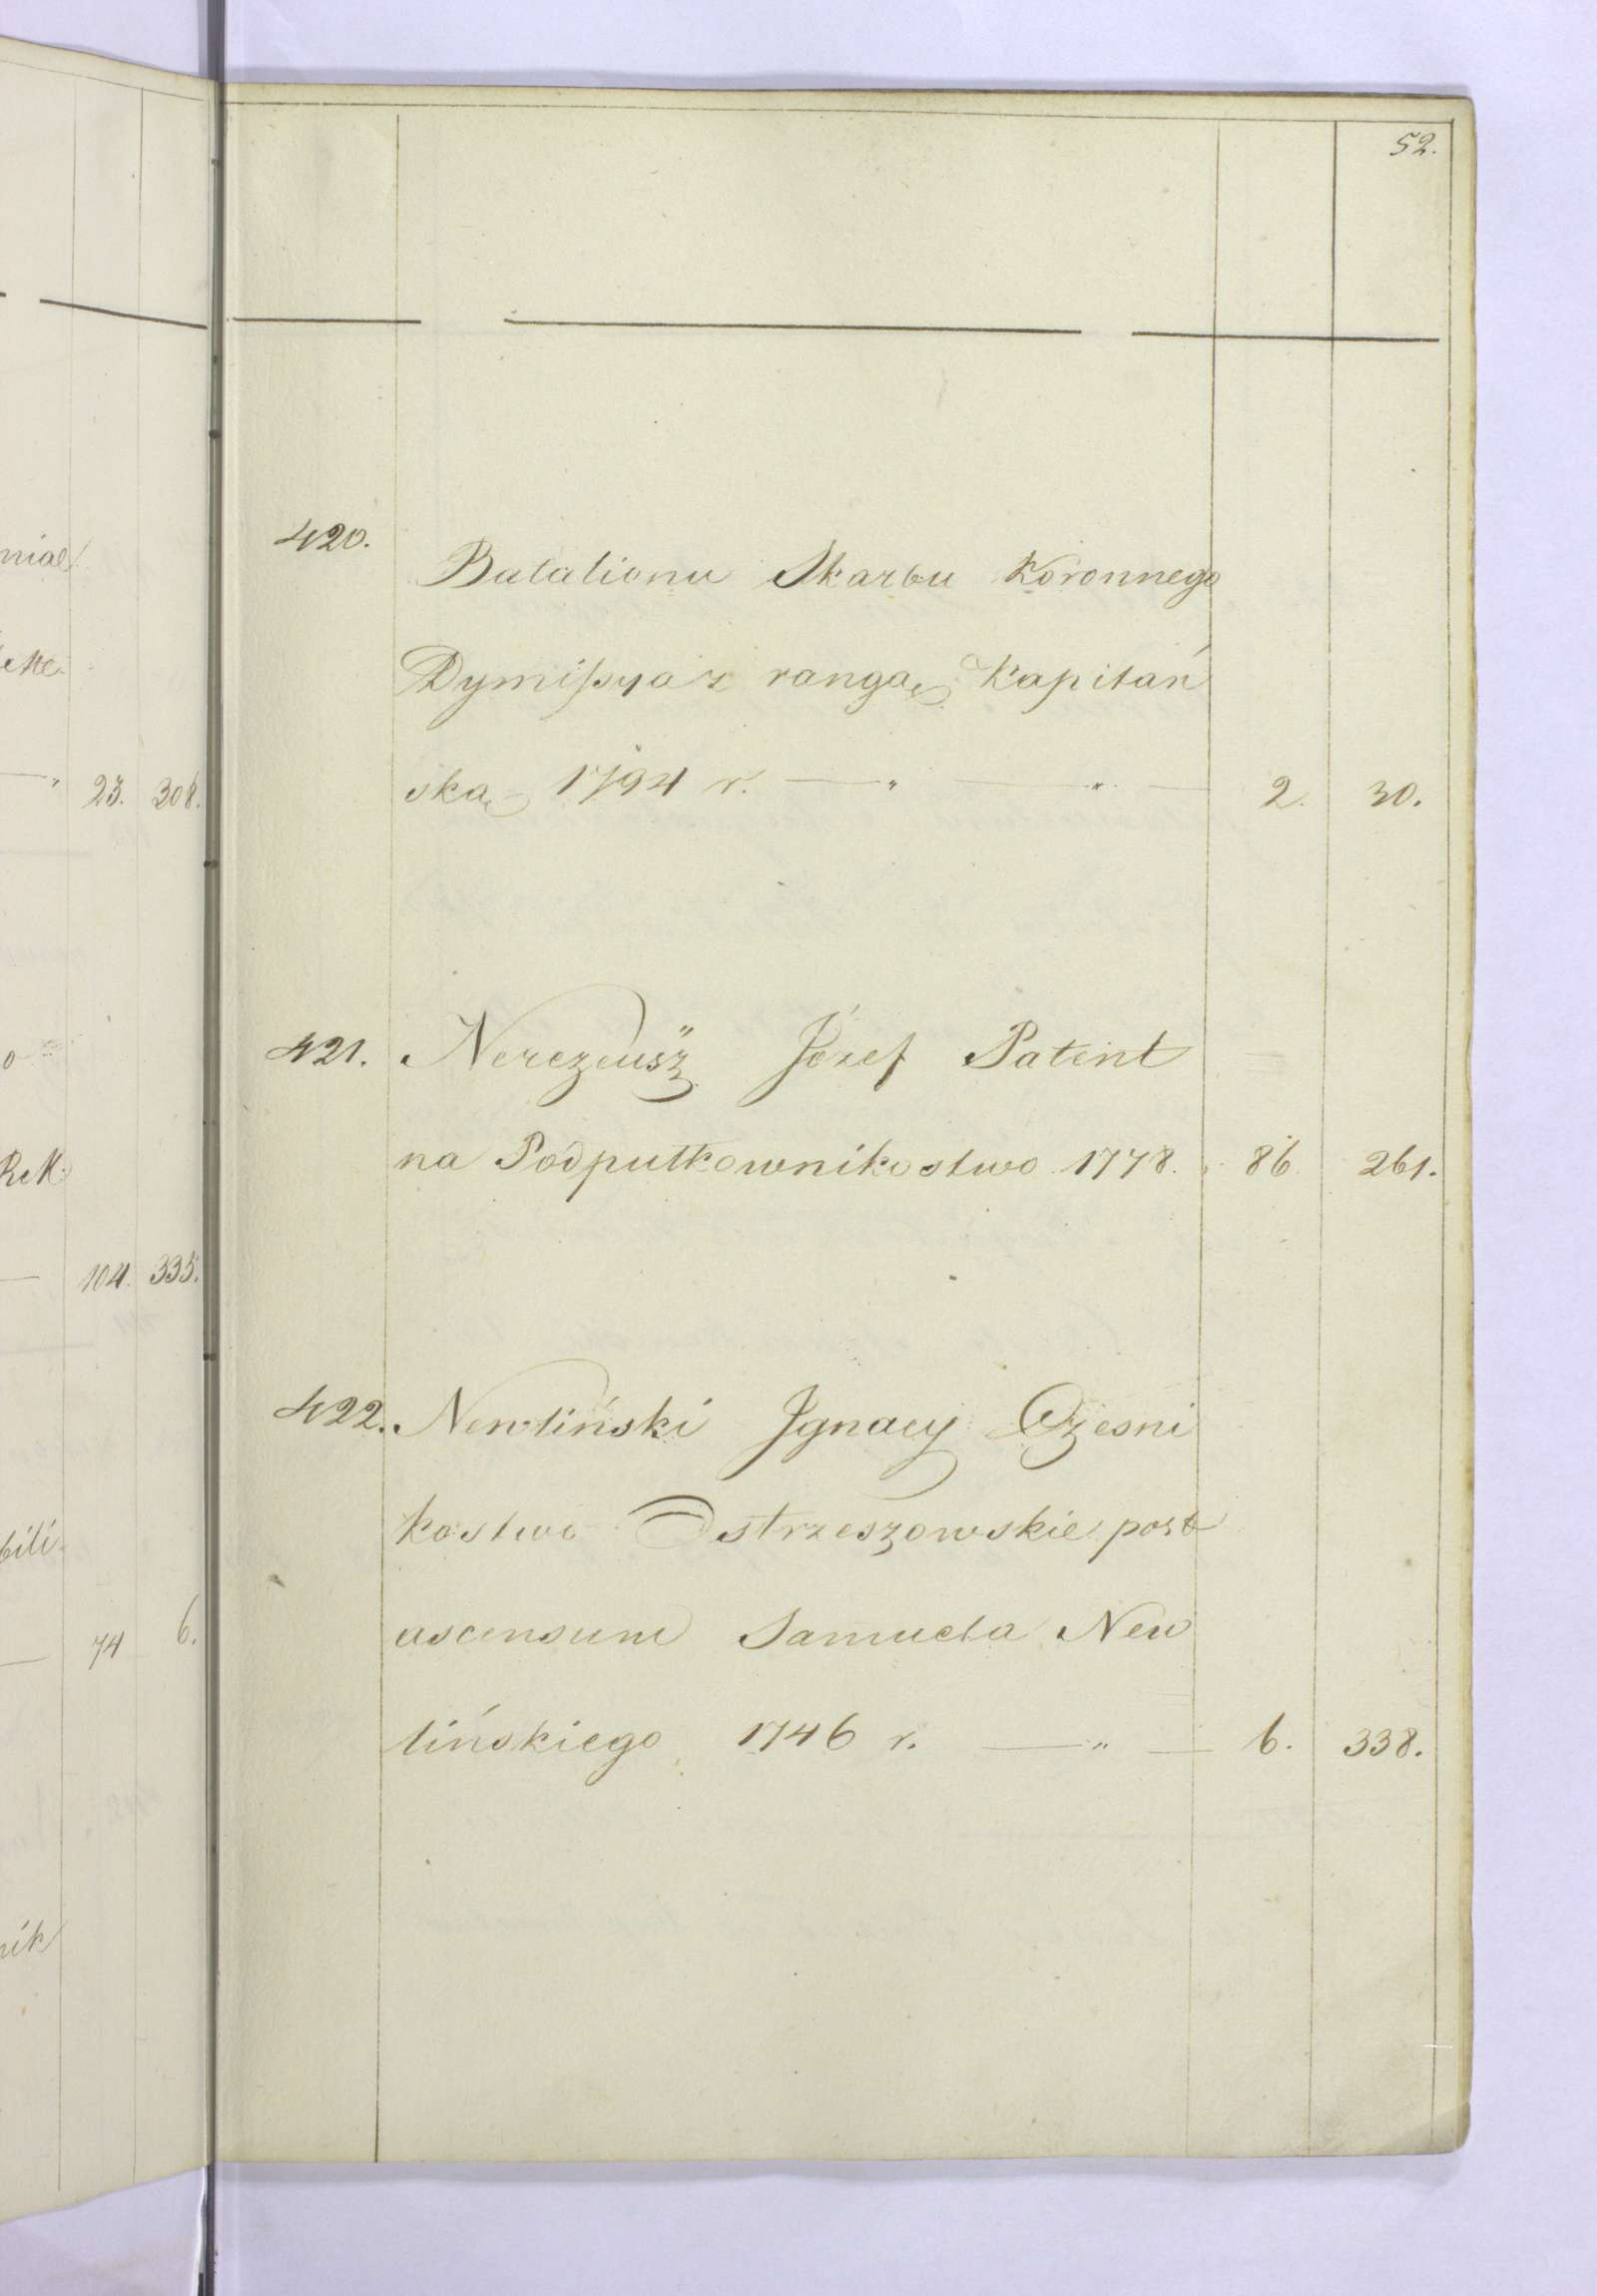 52.
420.
Batalionu Skarbu Koronnego
Dymissya z rangą Kapitań
ską 1794 r. — " — " — 2. 30.
421. Nerezeusz Józef Patent
na Podpułkownikostwo 1778. 86 261.
422. Newliński Ignacy Czesni
kostwo Ostrzeszowskie post
ascensum Samuela New
lińskiego 1746 r. — " — 6. 338.
23. 308.
104. 335.
74 6.